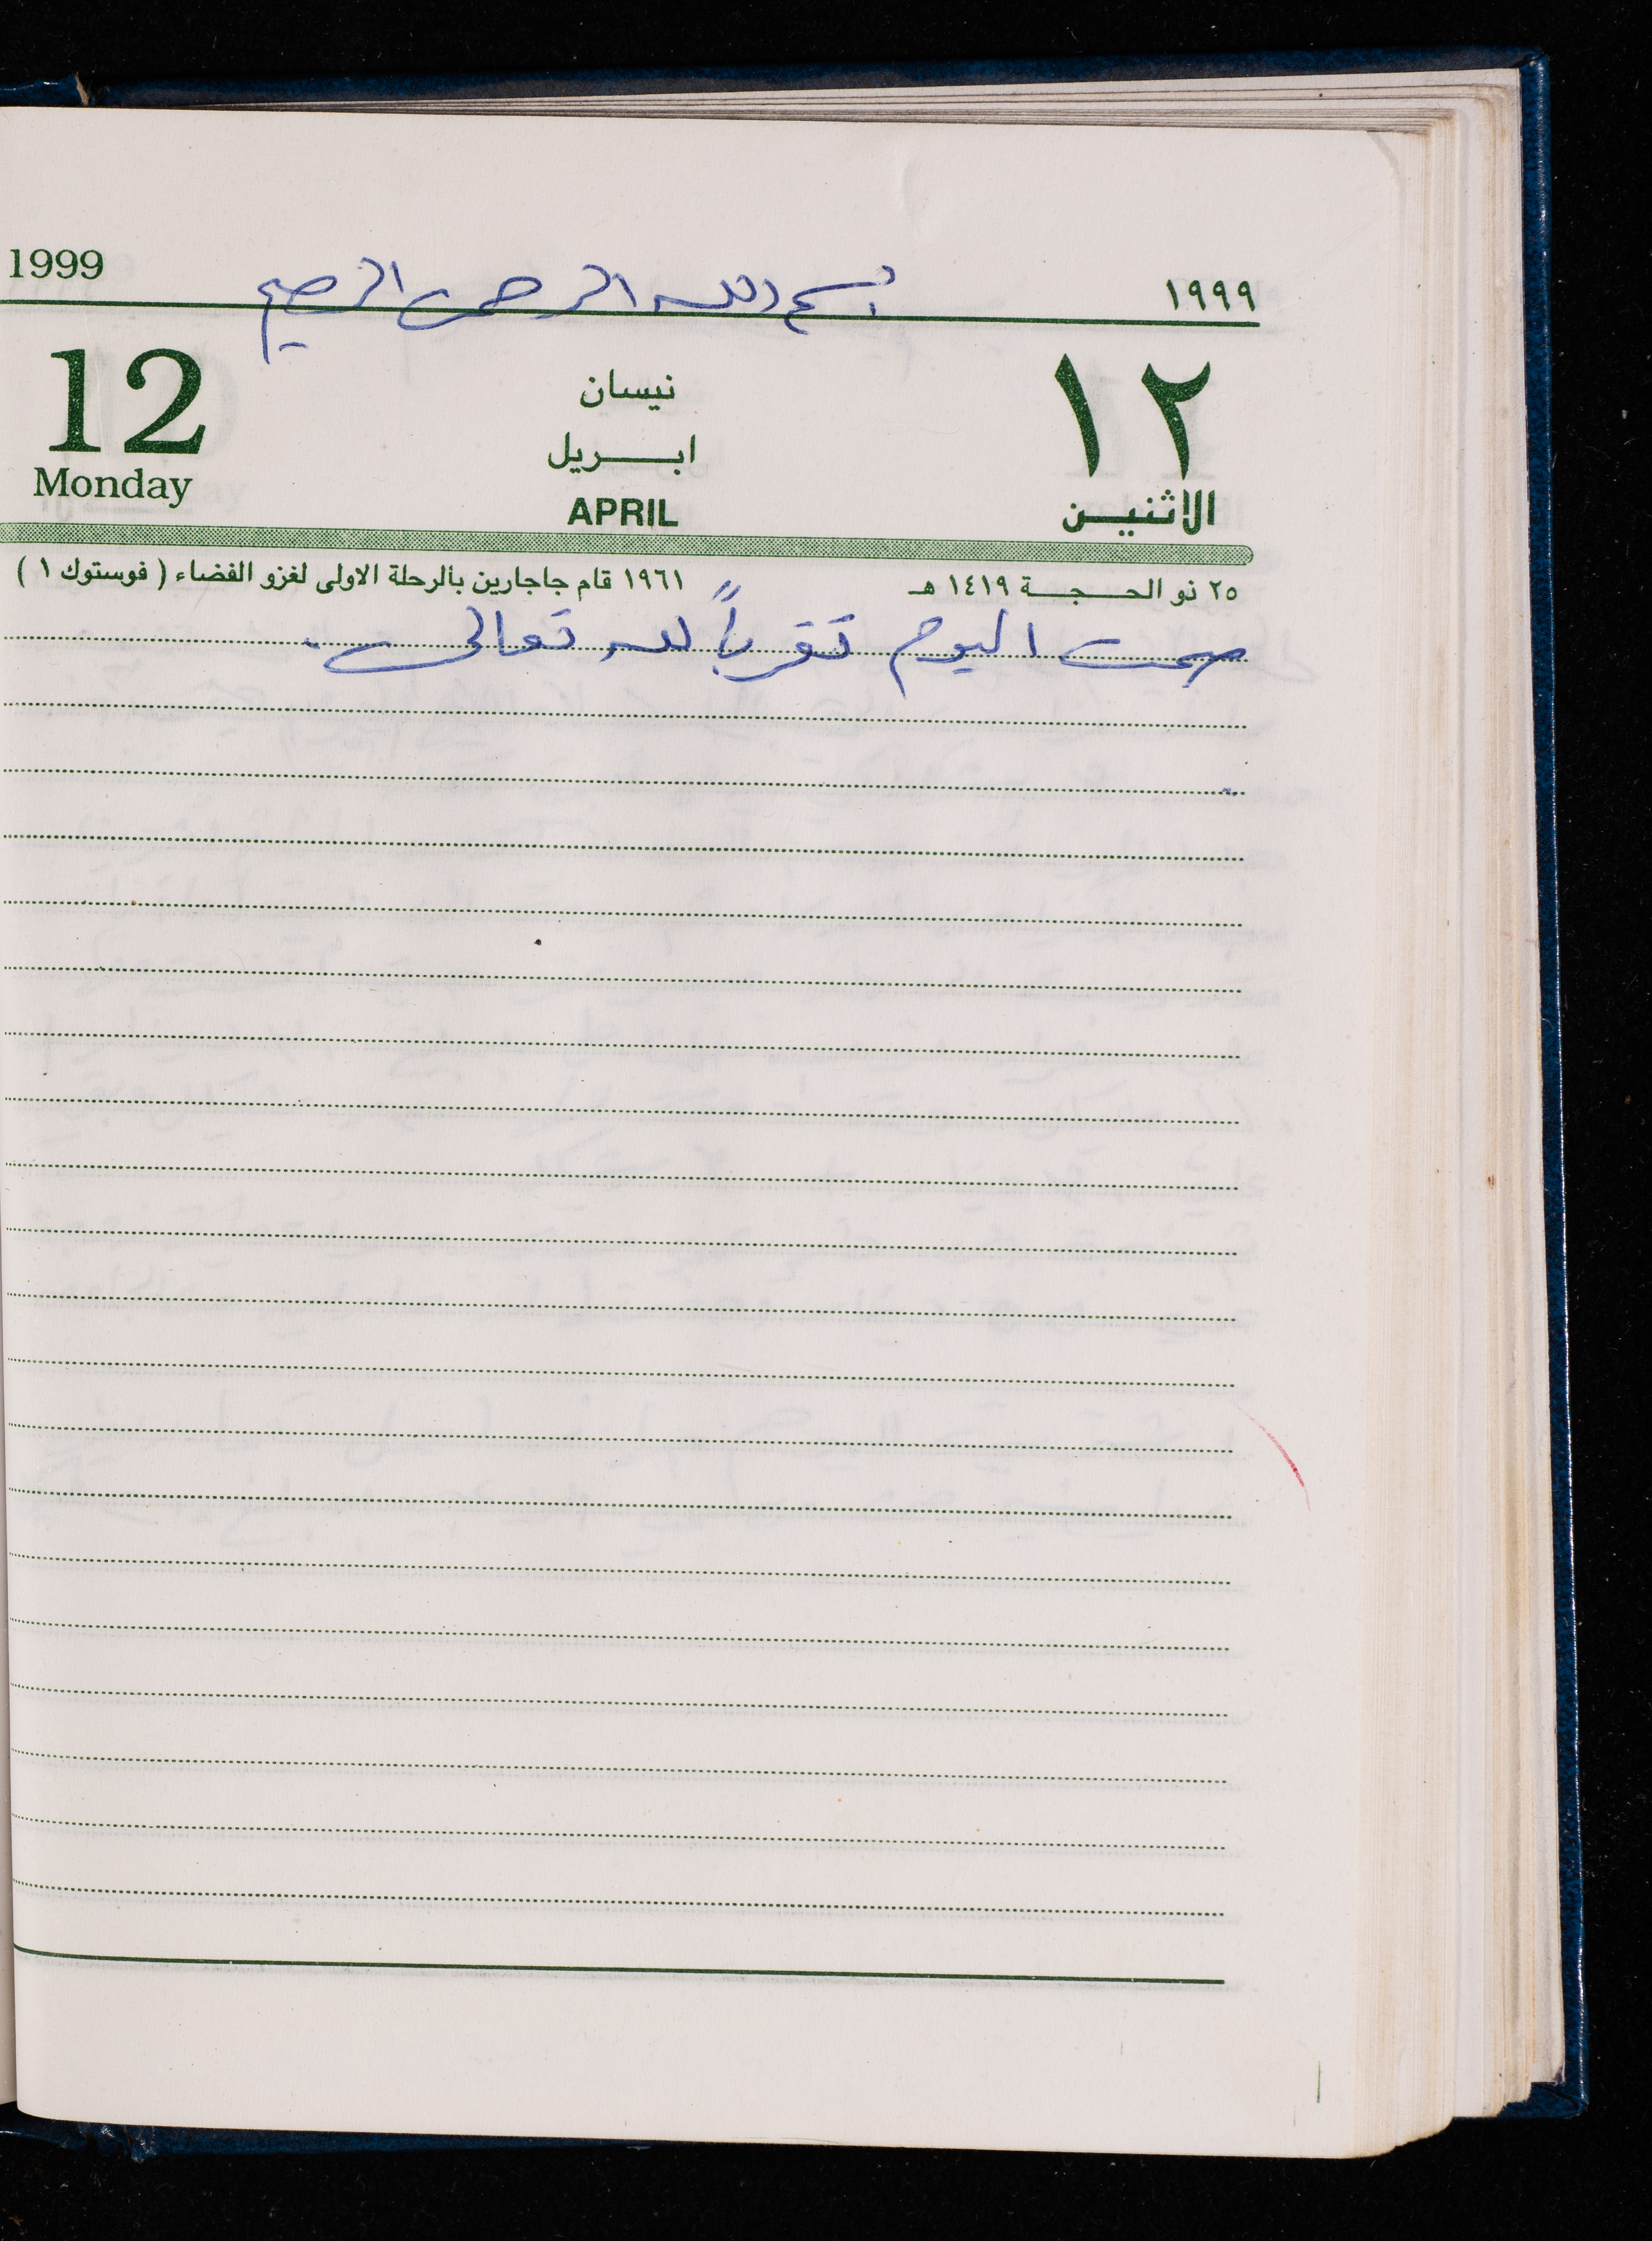 1999 بسم الله الرحمن الرحيم ١٩٩٩
12 نيسان ١٢
ابريل
Monday APRIL الاثنين
٢٥ ذو الحجة ١٤١٩ هـ ١٩٦١ قام جاجارين بالرحلة الاولى لغزو الفضاء ( فوستوك ١ )
صمت اليوم تقرباً لله تعالى .